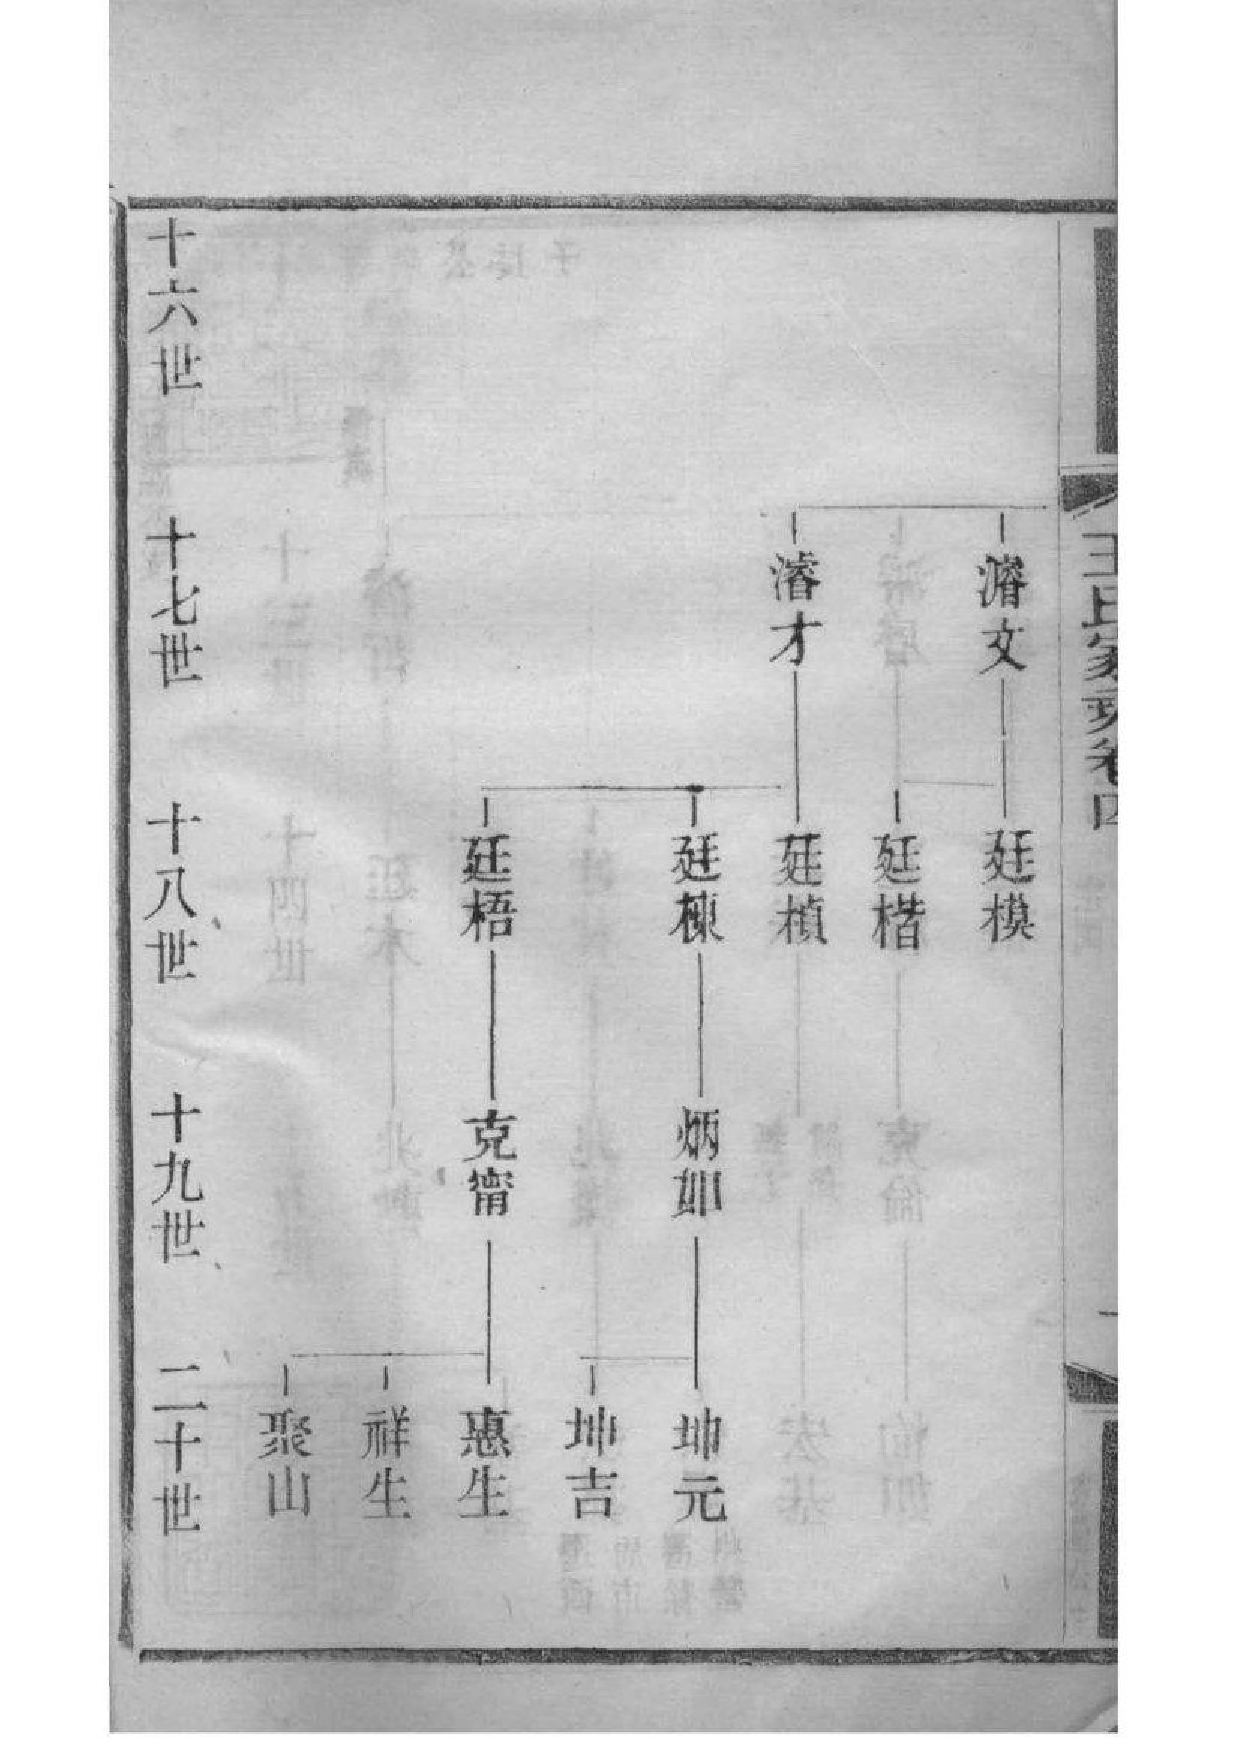 王氏家乘卷四
濬文
濬才
廷模
廷楷
廷楨
廷棟
廷梧
炳如
克甯
坤元
坤吉
惠生
祥生
聚山
十六世
十七世
十八世
十九世
二十世